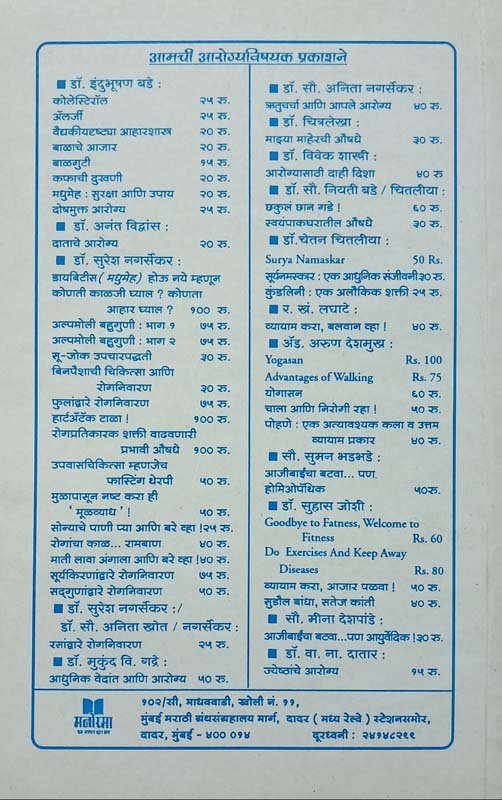 आमची आरोग्यविषयक प्रकाशने
■ डॉ. इंदुभूषण बडे :
कोलेस्टिरॉल २५ रु.
ॲलर्जी २५ रु.
वैद्यकीयदृष्ट्या आहारशास्त्र २० रु.
बाळाचे आजार २० रु.
बाळगुटी १५ रु.
कफाची दुखणी २० रु.
मधुमेह : सुरक्षा आणि उपाय २० रु.
दोषमुक्त आरोग्य २५ रु.
■ डॉ. अनंत विद्वांस :
दाताचे आरोग्य २० रु.
■ डॉ. सुरेश नगर्सेकर :
डायबिटीस (मधुमेह) होऊ नये म्हणून
कोणती काळजी घ्याल ? कोणता
आहार घ्याल ? १०० रु.
अल्पमोली बहुगुणी : भाग १ ७५ रु.
अल्पमोली बहुगुणी : भाग २ ७५ रु.
सू-जोक उपचारपद्धती ३० रु.
बिनपैशाची चिकित्सा आणि
रोगनिवारण ३० रु.
फुलांद्वारे रोगनिवारण ७५ रु.
हार्टॲटॅक टाळा ! १०० रु.
रोगप्रतिकारक शक्ती वाढवणारी
प्रभावी औषधे १०० रु.
उपवासचिकित्सा म्हणजेच
फास्टिंग थेरपी ५० रु.
मुळापासून नष्ट करा ही
' मूळव्याध ' ! ५० रु.
सोन्याचे पाणी प्या आणि बरे व्हा !२५ रु.
रोगांचा काळ... रामबाण ४० रु.
माती लावा अंगाला आणि बरे व्हा !४० रु.
सूर्यकिरणांद्वारे रोगनिवारण ७५ रु.
सद्गुणांद्वारे रोगनिवारण ५० रु.
■ डॉ. सुरेश नगर्सेकर :/
डॉ. सौ. अनिता स्रोत / नगर्सेकर :
रसांद्वारे रोगनिवारण २५ रु.
■ डॉ. मुकुंद वि. गद्रे :
आधुनिक वेदांत आणि आरोग्य ५० रु.
■ डॉ. सौ. अनिता नगर्सेकर :
ऋतुचर्चा आणि आपले आरोग्य ४० रु.
■ डॉ. चित्रलेखा :
माझ्या माहेरची औषधे ३० रु.
■ डॉ. विवेक शास्त्री :
आरोग्यासाठी दाही दिशा ४० रु
■ डॉ. सौ. नियती बडे / चितलीया :
छकुलं छान गडे ! ६० रु.
स्वयंपाकघरातील औषधे ३० रु.
■ डॉ.चेतन चितलीया :
Surya Namaskar 50 Rs.
सूर्यनमस्कार : एक आधुनिक संजीवनी३० रु.
कुंडलिनी : एक अलौकिक शक्ती २५ रु.
■ र. खं. लघाटे :
व्यायाम करा, बलवान व्हा ! ४० रु.
■ ॲड. अरुण देशमुख :
Yogasan Rs. 100
Advantages of Walking Rs. 75
योगासन ६० रु.
चाला आणि निरोगी रहा ! ५० रु.
पोहणे : एक अत्यावश्यक कला व उत्तम
व्यायाम प्रकार ४० रु.
■ सौ. सुमन भडभडे :
आजीबाईंचा बटवा... पण
होमिओपॅथिक ५०रु.
■ डॉ. सुहास जोशी :
Goodbye to Fatness, Welcome to
Fitness Rs. 60
Do Exercises And Keep Away
Diseases Rs. 80
व्यायाम करा, आजार पळवा ! ५० रु.
सुडौल बांधा, सतेज कांती ४० रु.
■ सौ. मीना देशपांडे :
आजीबाईंचा बटवा...पण आयुर्वेदिक !३० रु.
■ डॉ. वा. ना. दातार :
ज्येष्ठांचे आरोग्य १५ रु.
मनोरमा
१०२/सी, माधववाडी, खोली नं. ११,
मुंबई मराठी ग्रंथसंग्रहालय मार्ग, दादर ( मध्य रेल्वे ) स्टेशनसमोर,
दादर, मुंबई - ४०० ०१४ दूरध्वनी : २४१४८२९९